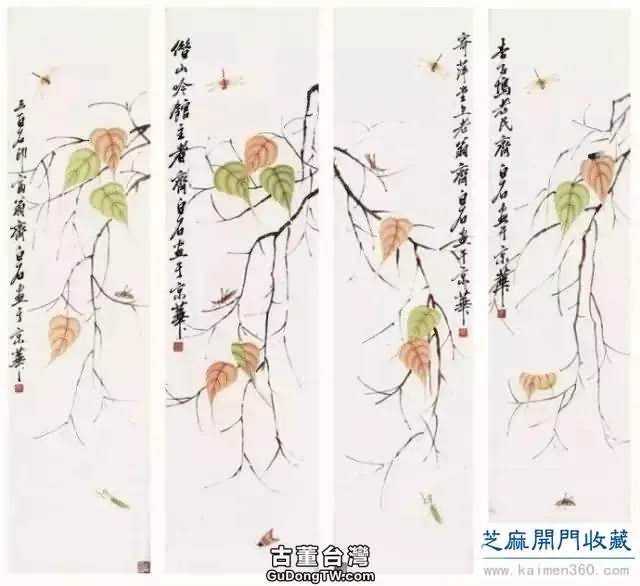 三百石印富翁齊白石畫于京華
借山吟館主者齊白石畫于京華
寄萍堂上老翁齊白石畫于京華
杏子塢老民齊白石畫于京華
古董台灣
GuDongTW.com
芝麻開門收藏
www.kaimen360.com